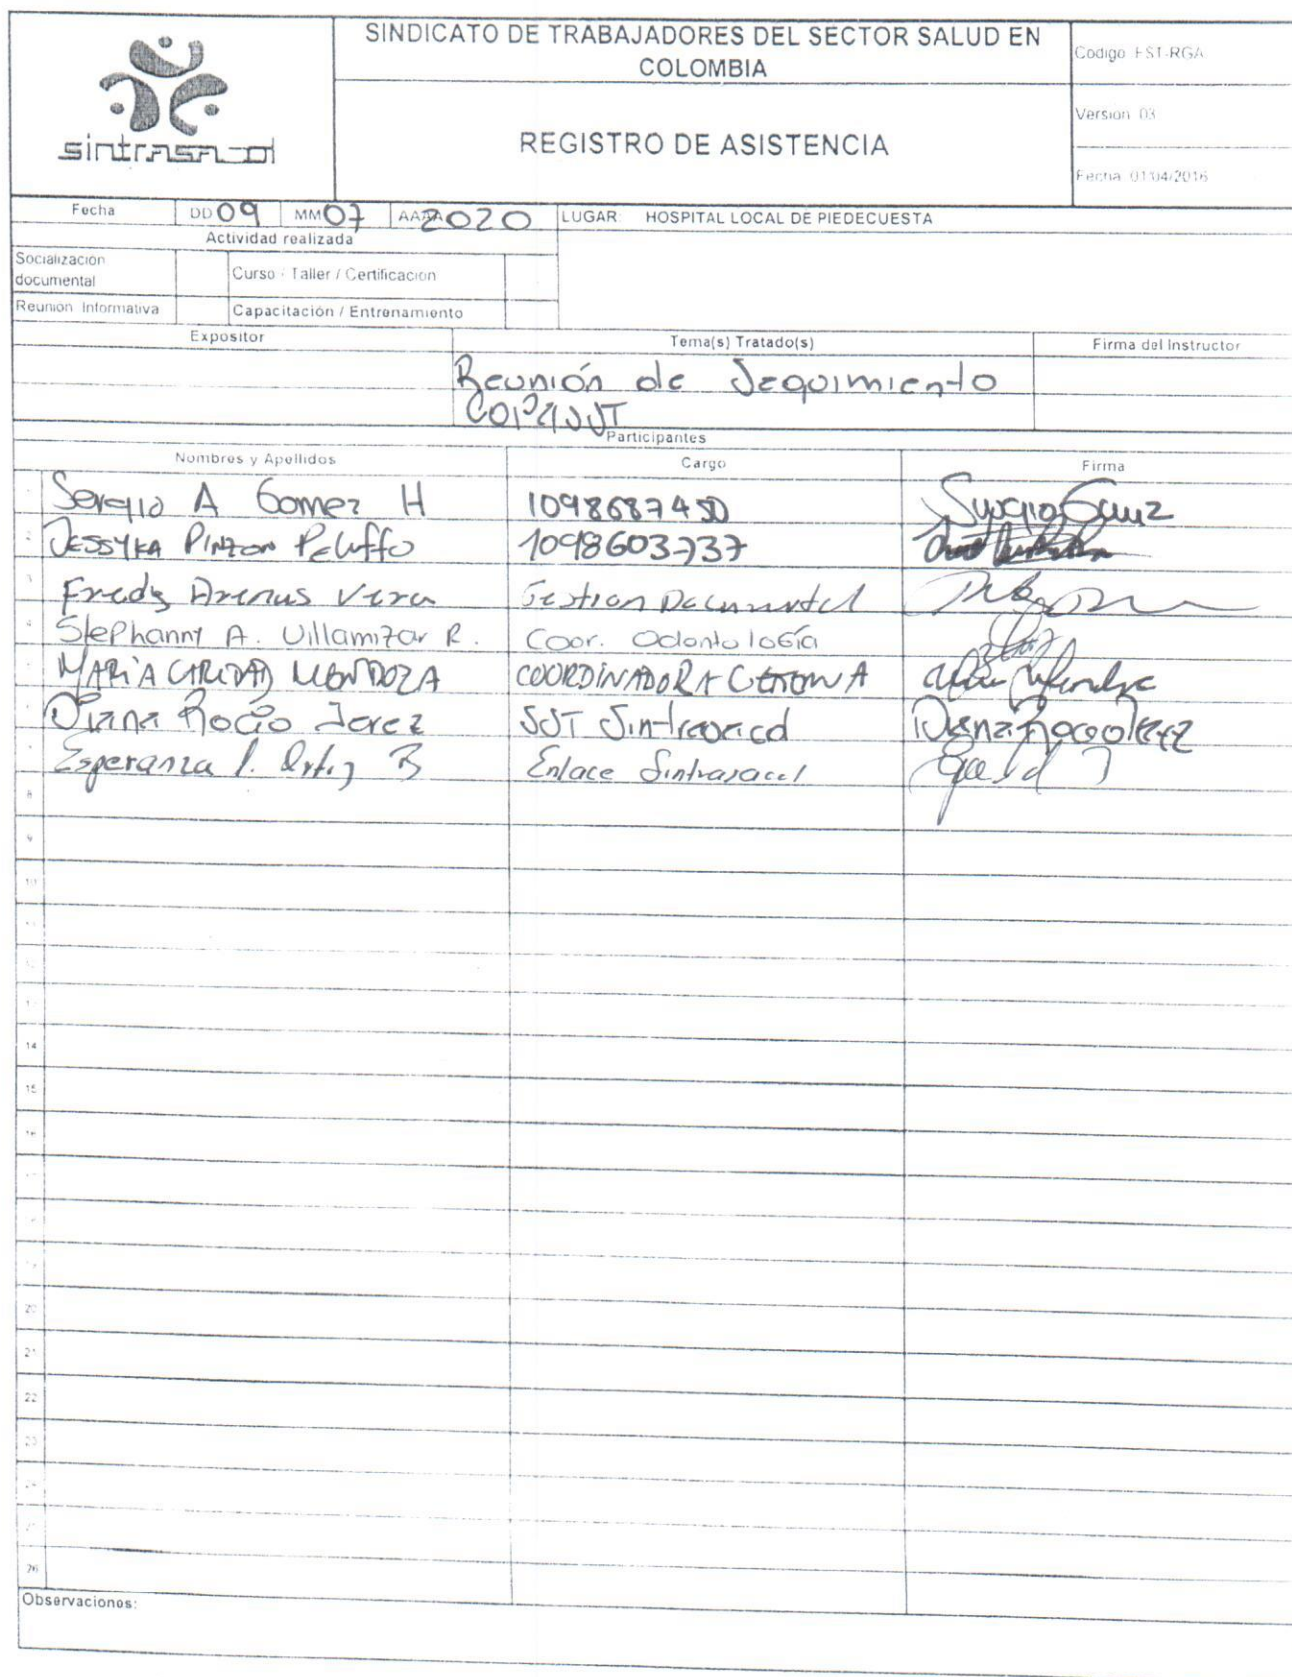 SINDICATO DE TRABAJADORES DEL SECTOR SALUD EN
COLOMBIA
Codigo FST-RGA
sintrasacol
REGISTRO DE ASISTENCIA
Version 03
Fecha 01/04/2016
Fecha DD 09 MM 07 AAAA 2020 LUGAR: HOSPITAL LOCAL DE PIEDECUESTA
Actividad realizada
Socialización
documental
Curso - Taller / Certificacion
Reunion Informativa
Capacitación / Entrenamiento
Expositor Tema(s) Tratado(s) Firma del Instructor
Reunión de Seguimiento
COPASST
Participantes
Nombres y Apellidos Cargo Firma
Sergio A Gomez H 1098687450 Sergio Gomez
Jessyka Pinzon Peluffo 1098603737
Fredy Arenas Vera Gestion Documental
4 Stephanny A. Villamizar R. Coor. Odontología
MARÍA CARIDAD MENDOZA COORDINADORA
Diana Rocio Jerez SST Sintrasacol Diana Rocio Jerez
Esperanza I. Ortiz B Enlace Sintrasacol
8
9
10
14
15
20
22
26
Observaciones: